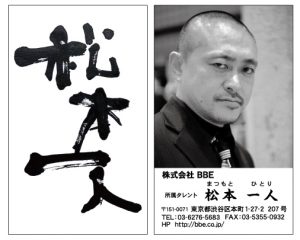 松本一人
株式会社 BBE
まつもと ひとり
所属タレント 松本 一人
〒151-0071 東京都渋谷区本町1-27-2 207号
TEL:03-6276-5683 FAX:03-5355-0932
HP http://bbe.co.jp/